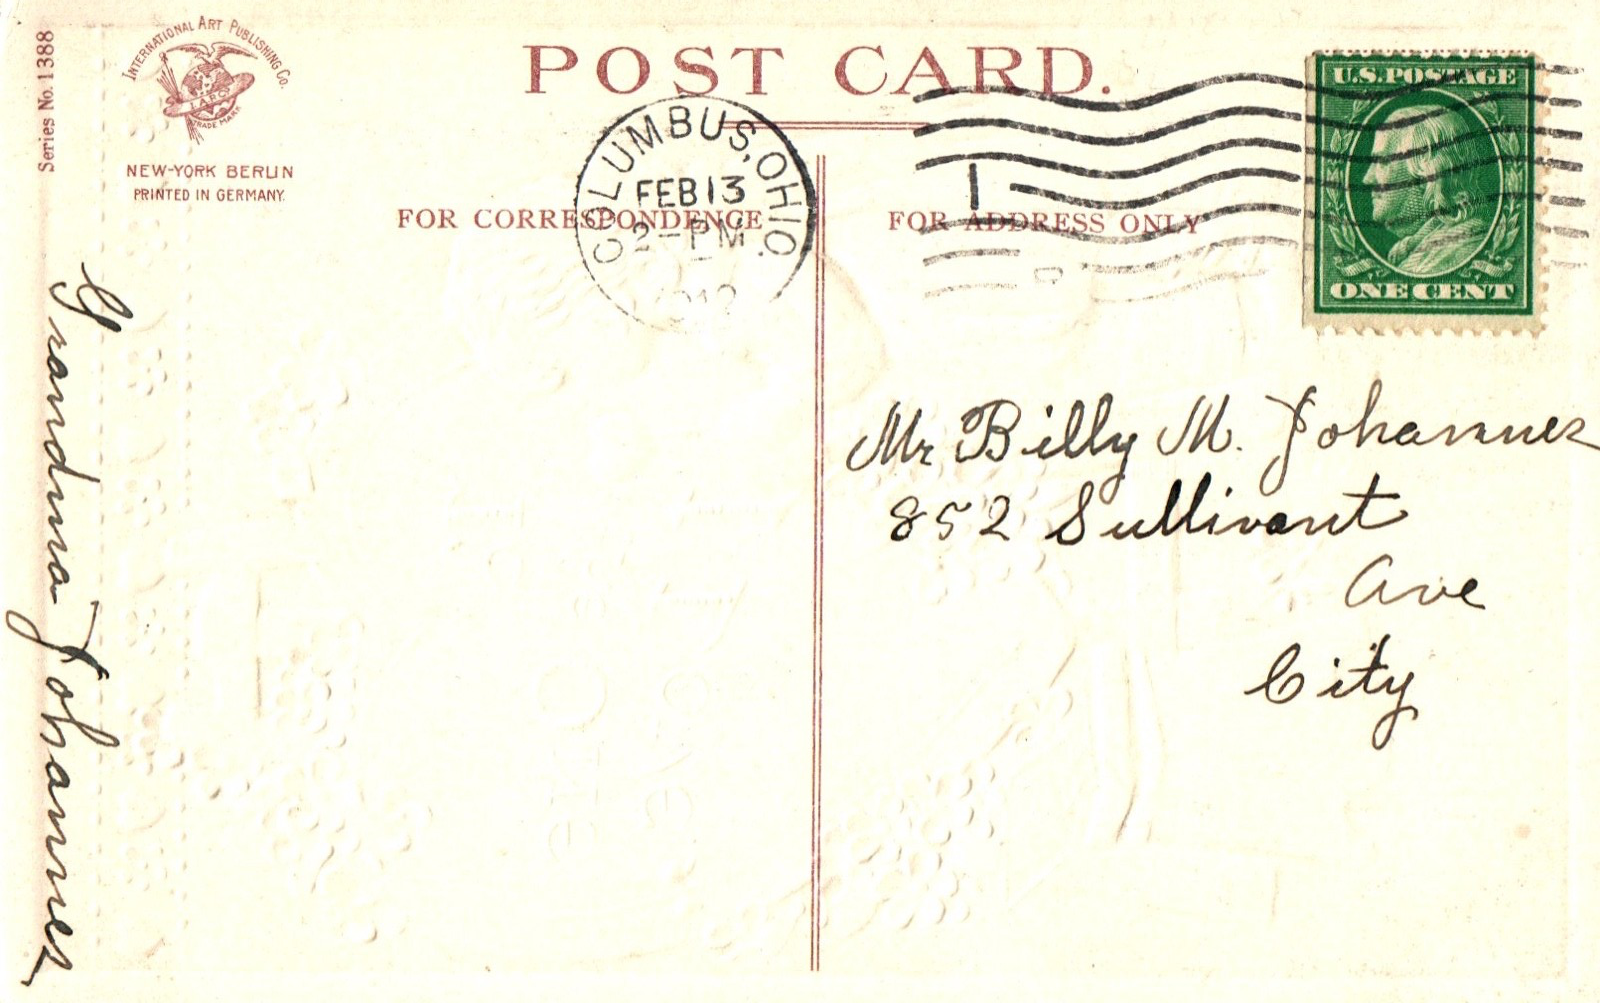 Series No. 1388
INTERNATIONAL ART PUBLISHING CO.
I.A.P.CO
TRADE MARK
NEW-YORK BERLIN
PRINTED IN GERMANY.
POST CARD.
FOR CORRESPONDENCE
FOR ADDRESS ONLY
COLUMBUS, OHIO.
FEB 13
2-PM
1912
1
D
U.S. POSTAGE
ONE CENT
Mr Billy M. Johannes
852 Sullivant
Ave
City
Grandma Johannes